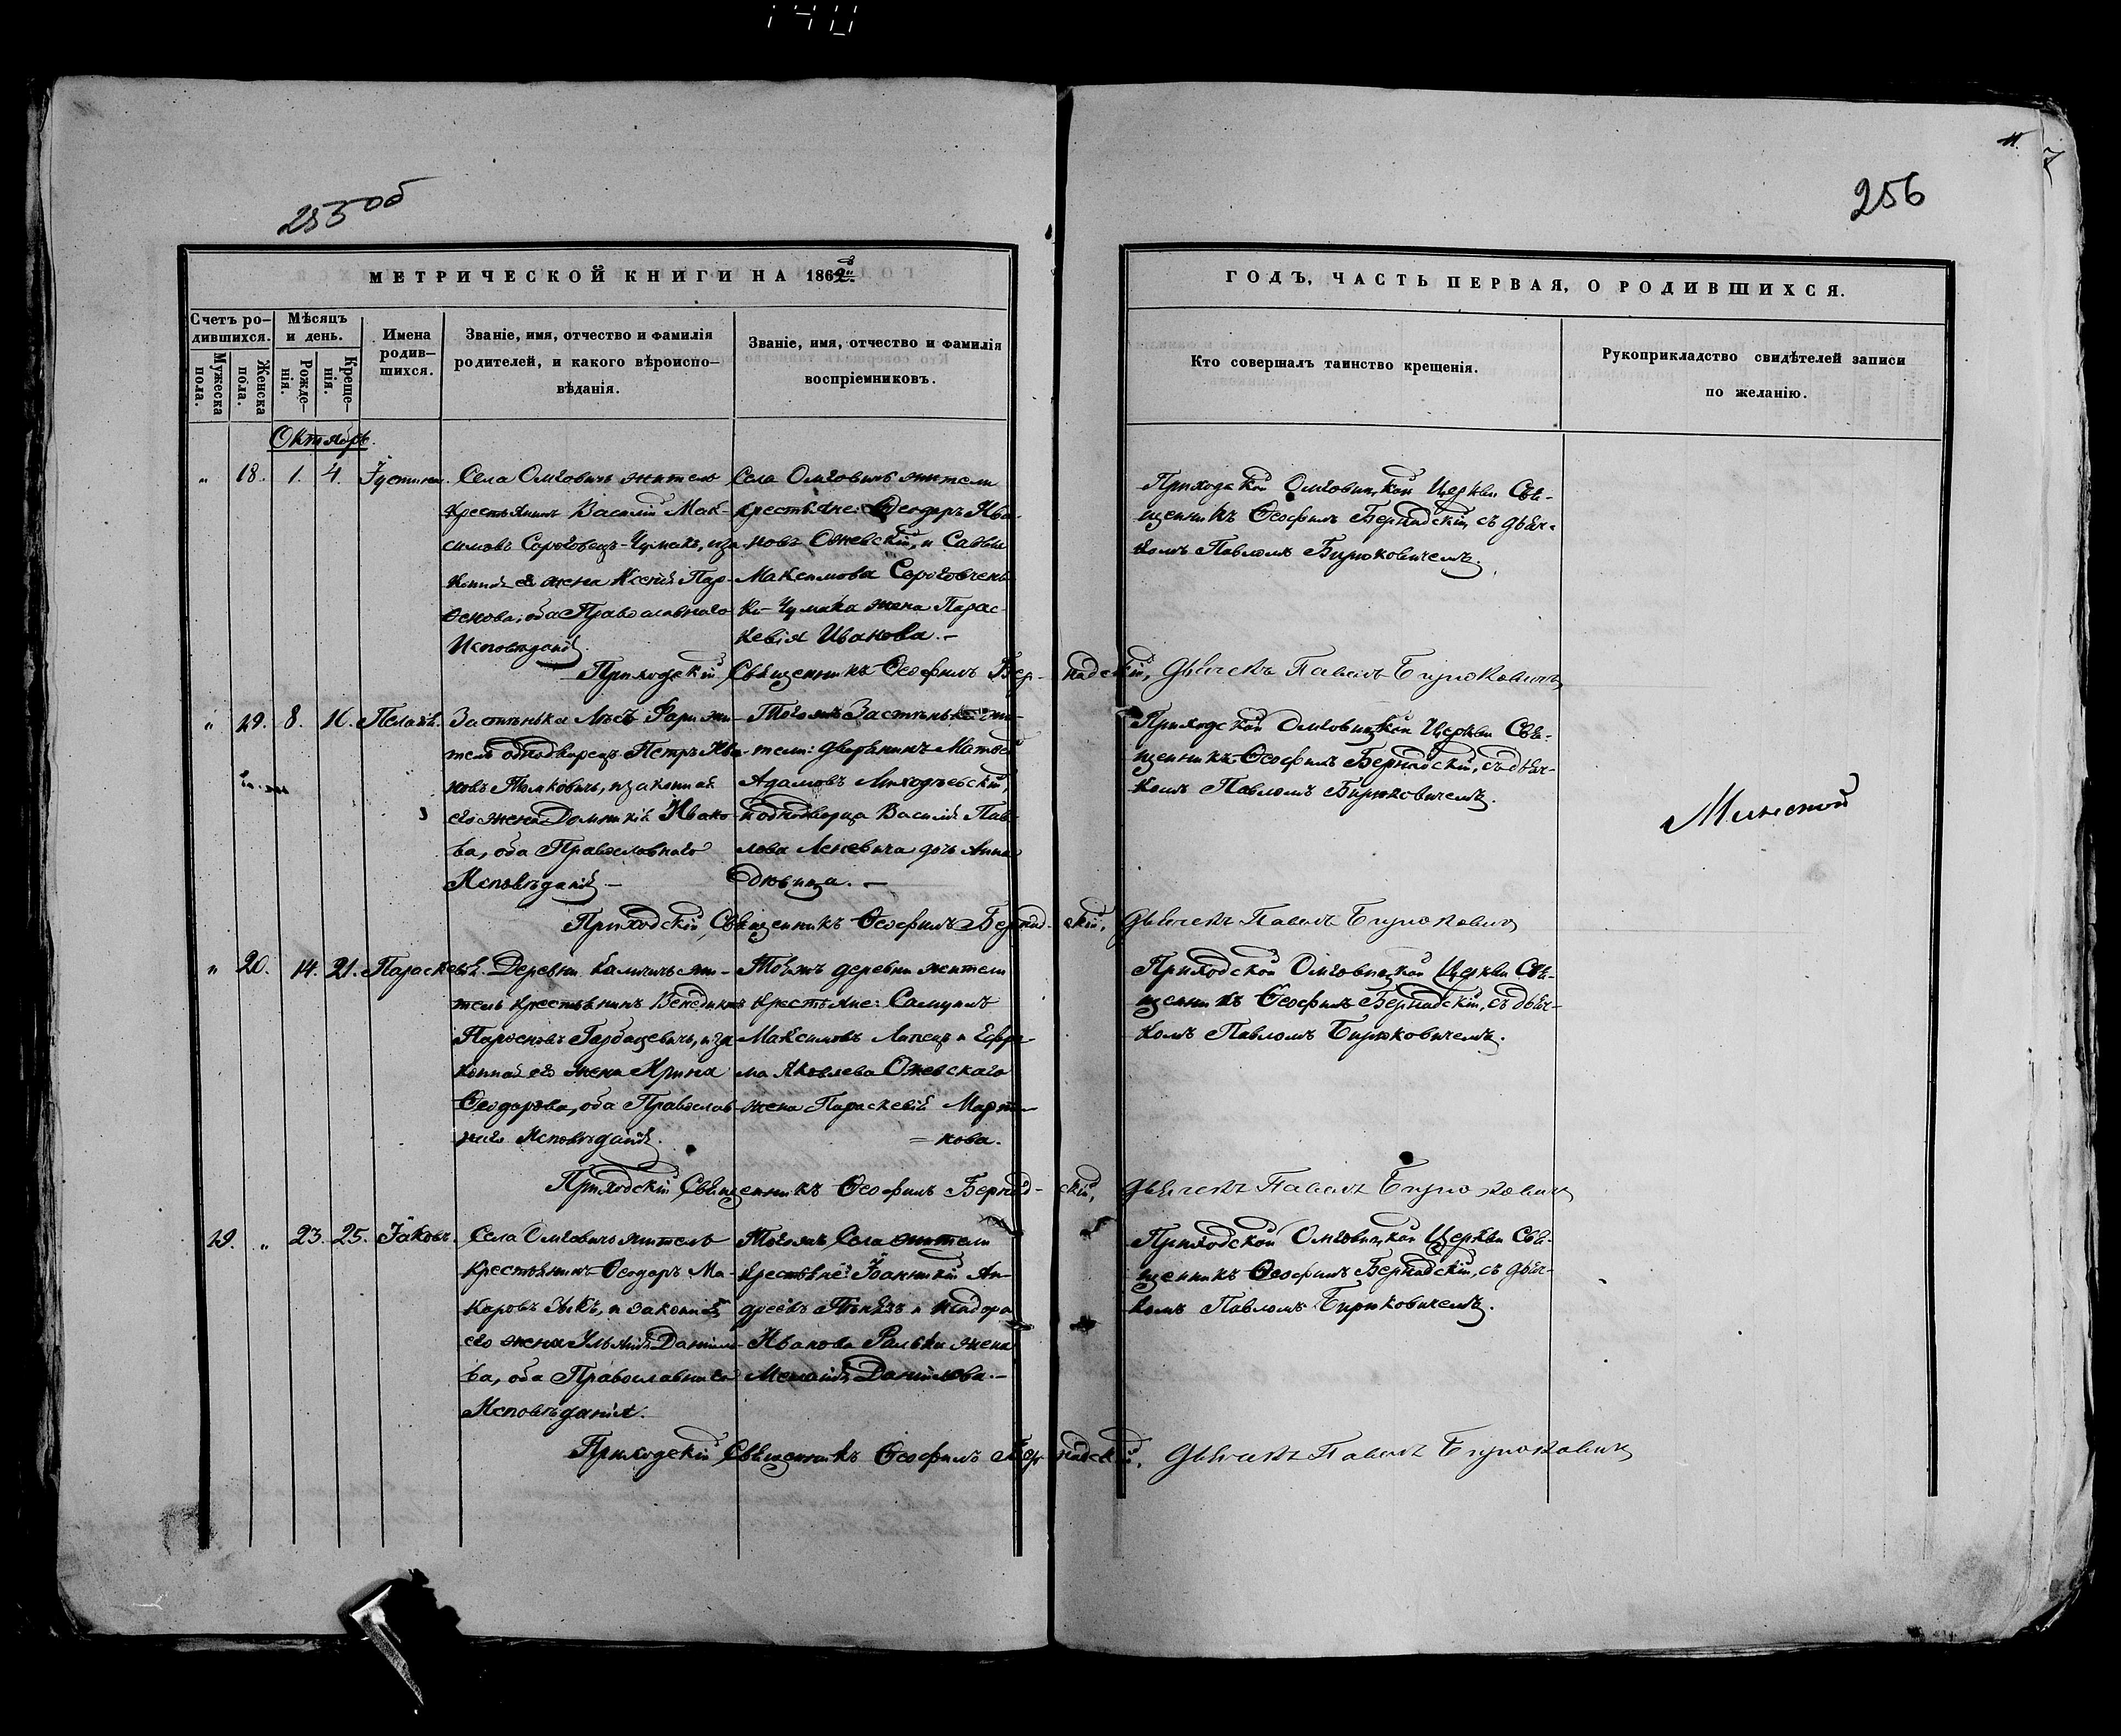 140
7
255об
256
МЕТРИЧЕСКОЙ КНИГИ НА 1862й
ГОДЪ, ЧАСТЬ ПЕРВАЯ, О РОДИВШИХСЯ.
Счетъ ро-
дившихся.
Мужеска
пола.
Женска
пола.
Мѣсяцъ
и день.
Рожде-
нія.
Креще-
нія.
Имена
родив-
шихся.
Званіе, имя, отчество и фамилія
родителей, и какого вѣроиспо-
вѣданія.
Званіе, имя, отчество и фамилія
воспріемниковъ.
Кто совершалъ таинство крещенія.
Рукоприкладство свидѣтелей записи
по желанію.
Октябрь.
„ 18. 1. 4. Іустина.
Села Омговичъ житель
крестьянинъ Василій Мак-
симовъ Чумакъ, и за-
конная его жена Ксенія Пар-
ѳенова, оба Православнаго
Исповѣданія.
Села Омговичъ жители
крестьяне: Ѳеодоръ Ива-
новъ Ожевскій, и Саввы
Максимова
ко-Чумака жена Парас-
кевія Иванова. —
Приходской Омговицкой Церкви Свя-
щенникъ Ѳеофилъ Бернадскій, съ дьяч-
комъ Павломъ Бирюковичемъ.
Приходскій Священникъ Ѳеофилъ Бернадскій, Дьячекъ Павелъ Бирюковичъ
„ 19. 8. Пелагія.
Застѣнка житель
однодворецъ Петръ Ива-
новъ и законная
его жена Домникія Ивано-
ва, оба Православнаго
Исповѣданія —
Тогожъ Застѣнка жи-
тели: дворянинъ Матвей
Адамовъ
и однодворца Василія Пав-
лова дочь Анна
дѣвица. —
Приходской Омговицкой Церкви Свя-
щенникъ Ѳеофилъ Бернадскій, съ дьяч-
комъ Павломъ Бирюковичемъ.
Приходскій Священникъ Ѳеофилъ Бернадскій, Дьячекъ Павелъ Бирюковичъ
„ 20. 14. 21. Параскевія.
Деревни жи-
тель крестьянинъ Венедиктъ
Парѳеновъ Горбацевичъ, и за-
конная его жена Ирина
Ѳеодорова, оба Православ-
наго Исповѣданія.
Тойжъ деревни жители
крестьяне: Самуилъ
Максимовъ Лапецъ и Ефре-
ма Яковлева Ожевскаго
жена Параскевія Марти-
= нова.
Приходской Омговицкой Церкви Свя-
щенникъ Ѳеофилъ Бернадскій, съ дьяч-
комъ Павломъ Бирюковичемъ.
Приходскій Священникъ Ѳеофилъ Бернадскій, Дьячекъ Павелъ Бирюковичъ
19. „ 23. 25. Іаковъ.
Села Омговичъ житель
крестьянинъ Ѳеодоръ Ма-
каровъ и законная
его жена Ульянія Данило-
ва, оба Православнаго
Исповѣданія.
Тогожъ Села жители
крестьяне: Іоанникій Ан-
дреевъ и Исидора
Иванова жена
Меланія Данилова. —
Приходской Омговицкой Церкви Свя-
щенникъ Ѳеофилъ Бернадскій, съ дьяч-
комъ Павломъ Бирюковичемъ.
Приходскій Священникъ Ѳеофилъ Бернадскій, Дьячекъ Павелъ Бирюковичъ